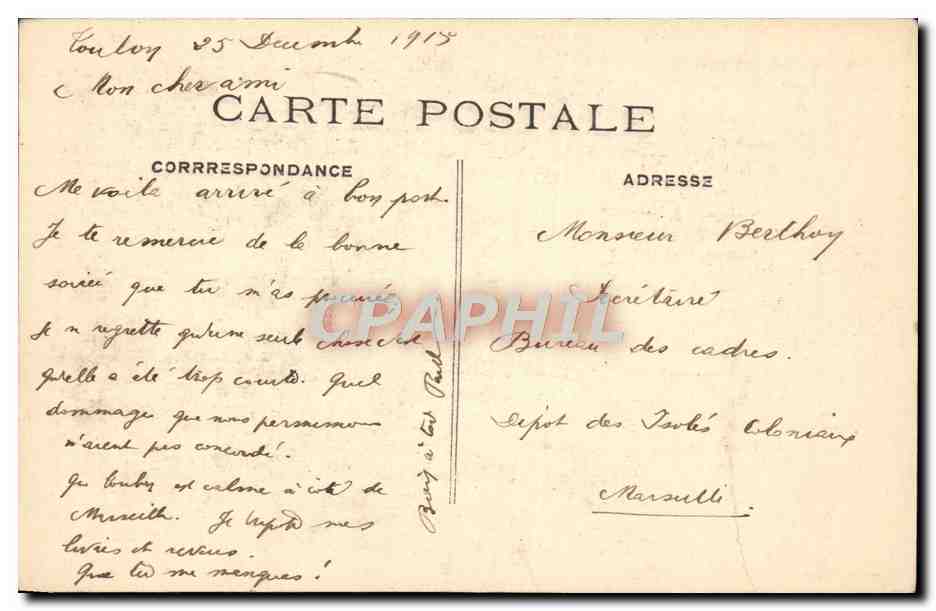 Toulon 25 Decembre 1915
Mon cher ami
CARTE POSTALE
CORRRESPONDANCE
Me voila arrivé à bon port.
Je te remercie de la bonne
soirée que tu m'as procurée
Je n regrette qu'une seule chose c'est
qu'elle a été trop courte. Quel
dommage que nos permissions
n'aient pas concordé.
Que Toulon est calme à côté de
Marseille. Je mes
livres et revues.
Que tu me manques!
à toi Paul
CPAPHIL
ADRESSE
Monsieur Berthoy
Secrétaire
Bureau des cadres.
Dépot des Isolés Coloniaux
Marseille.